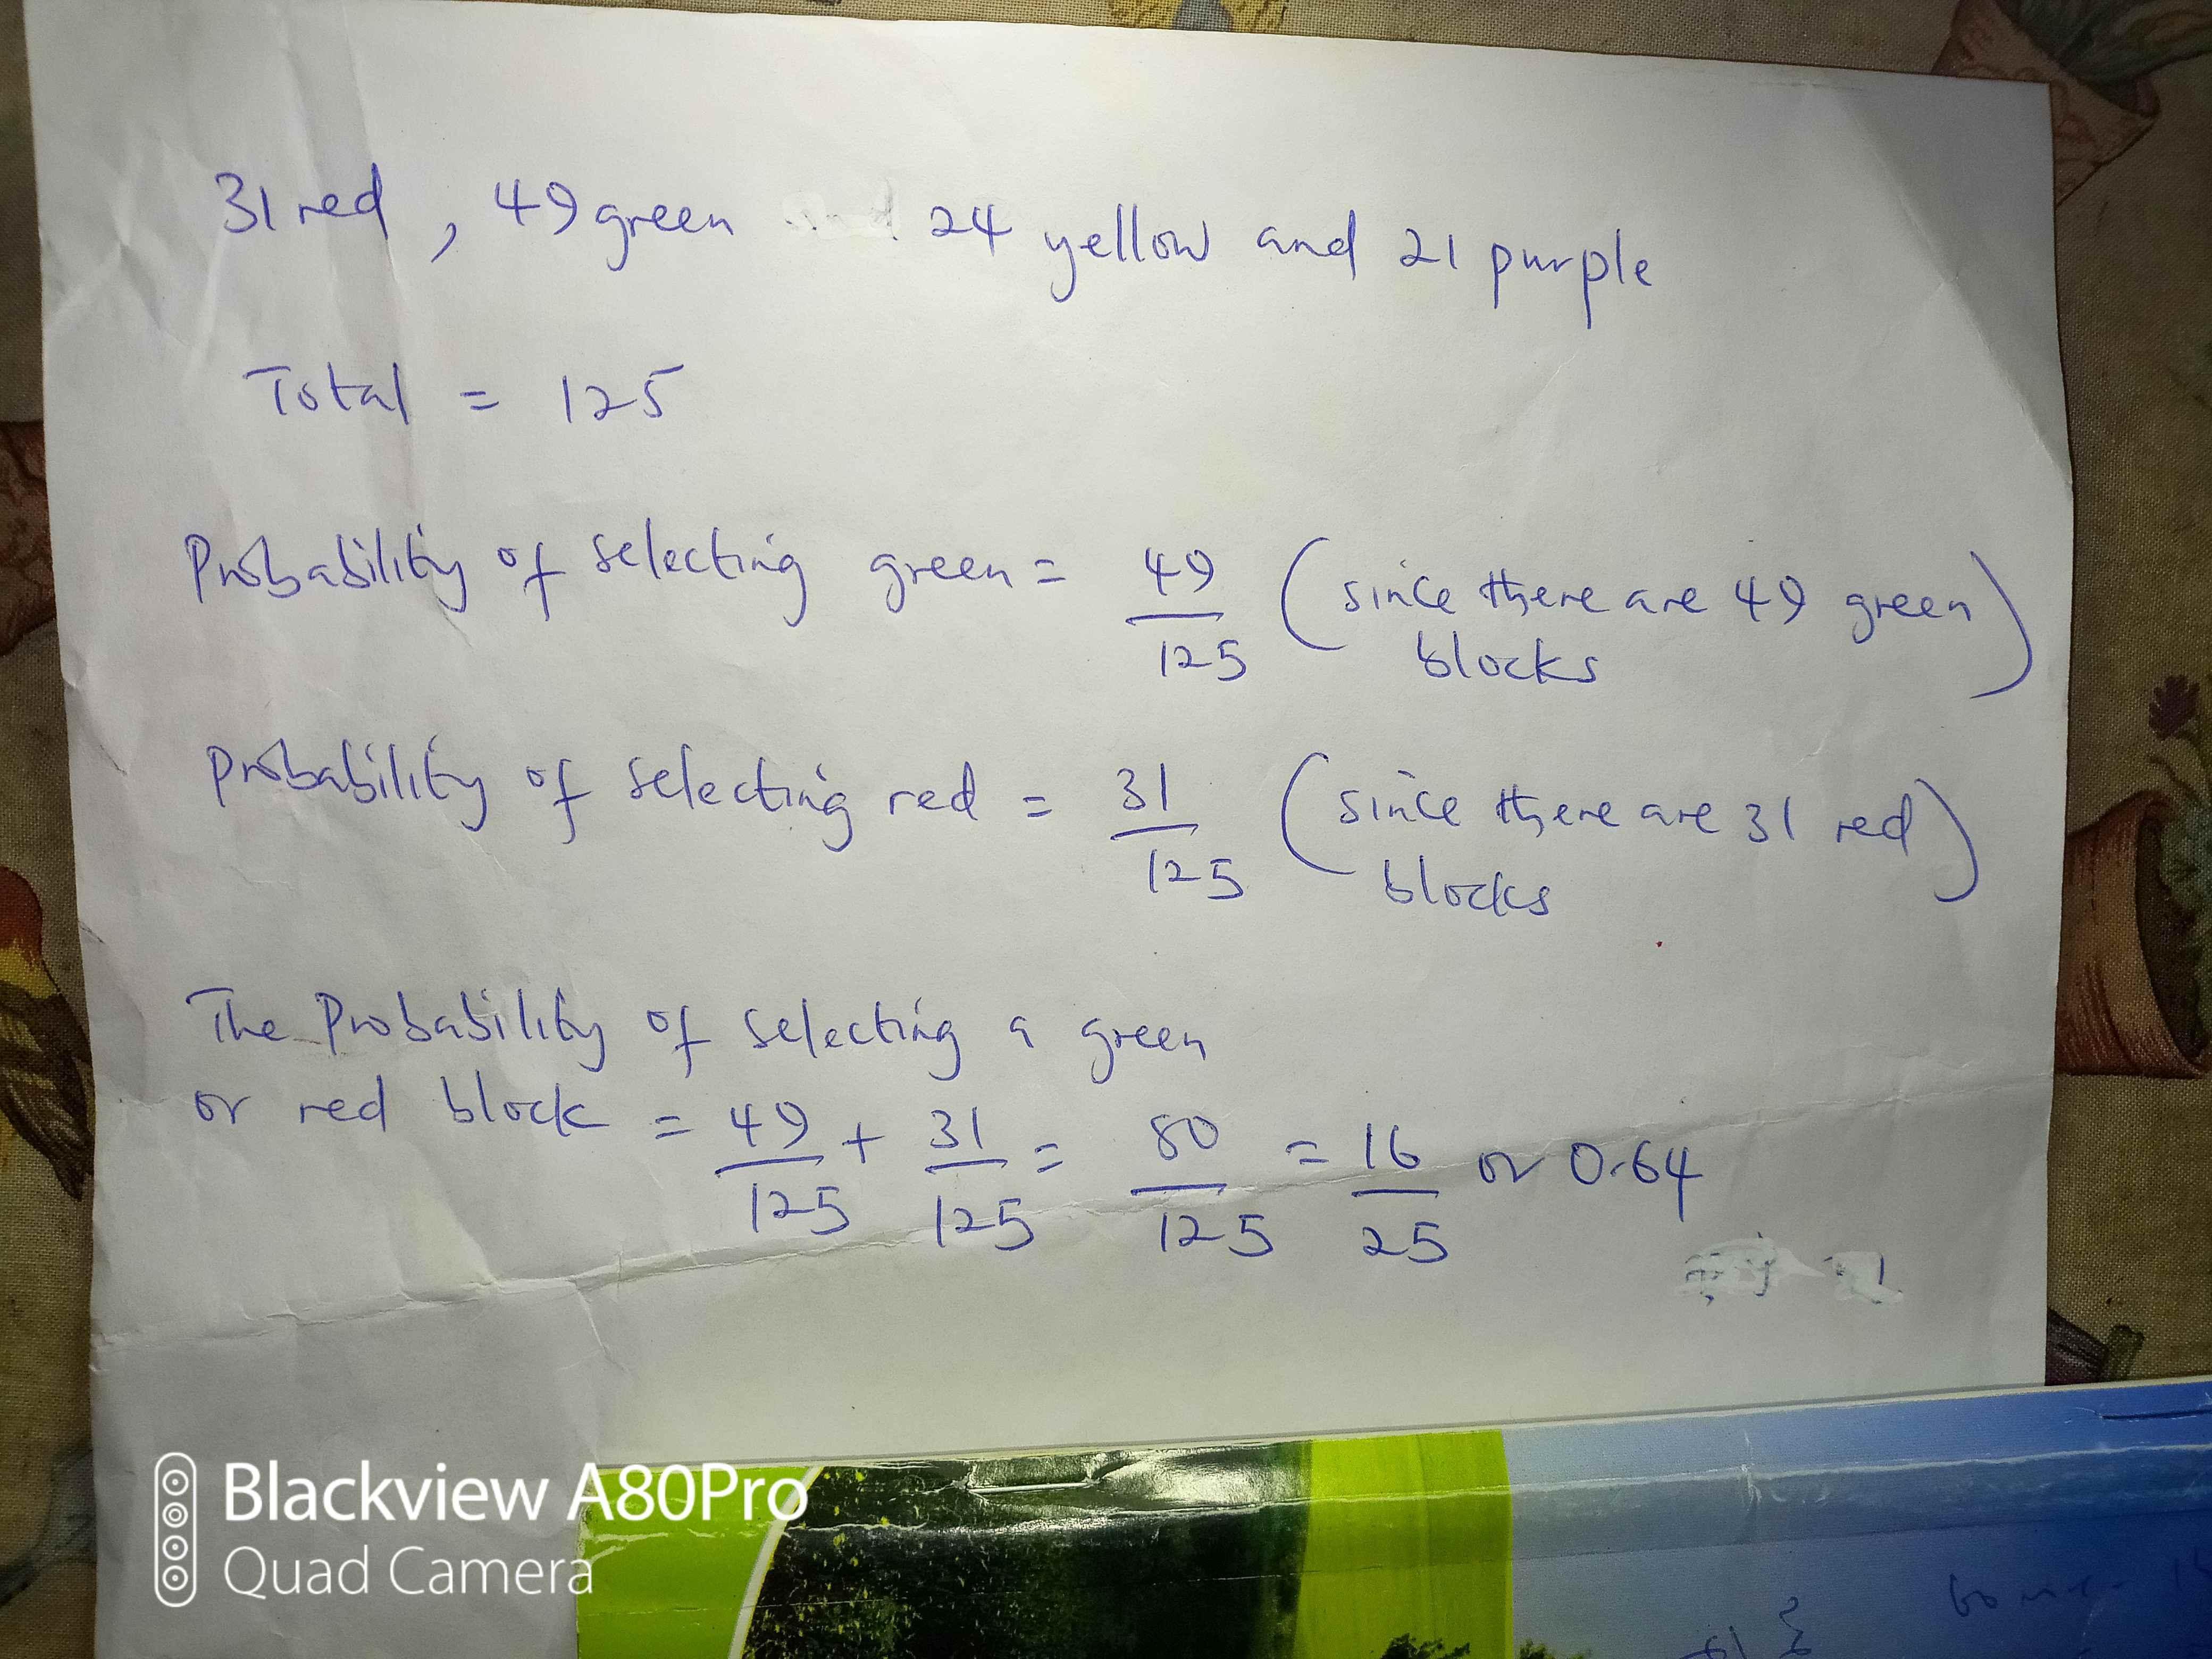 31 red, 49 green 24 yellow and 21 purple
Total = 125
Probability of selecting green = 49/125 (since there are 49 green blocks)
Probability of selecting red = 31/125 (since there are 31 red blocks)
The Probability of selecting a green
or red block = 49/125 + 31/125 = 80/125 = 16/25 or 0.64
Blackview A80Pro
Quad Camera